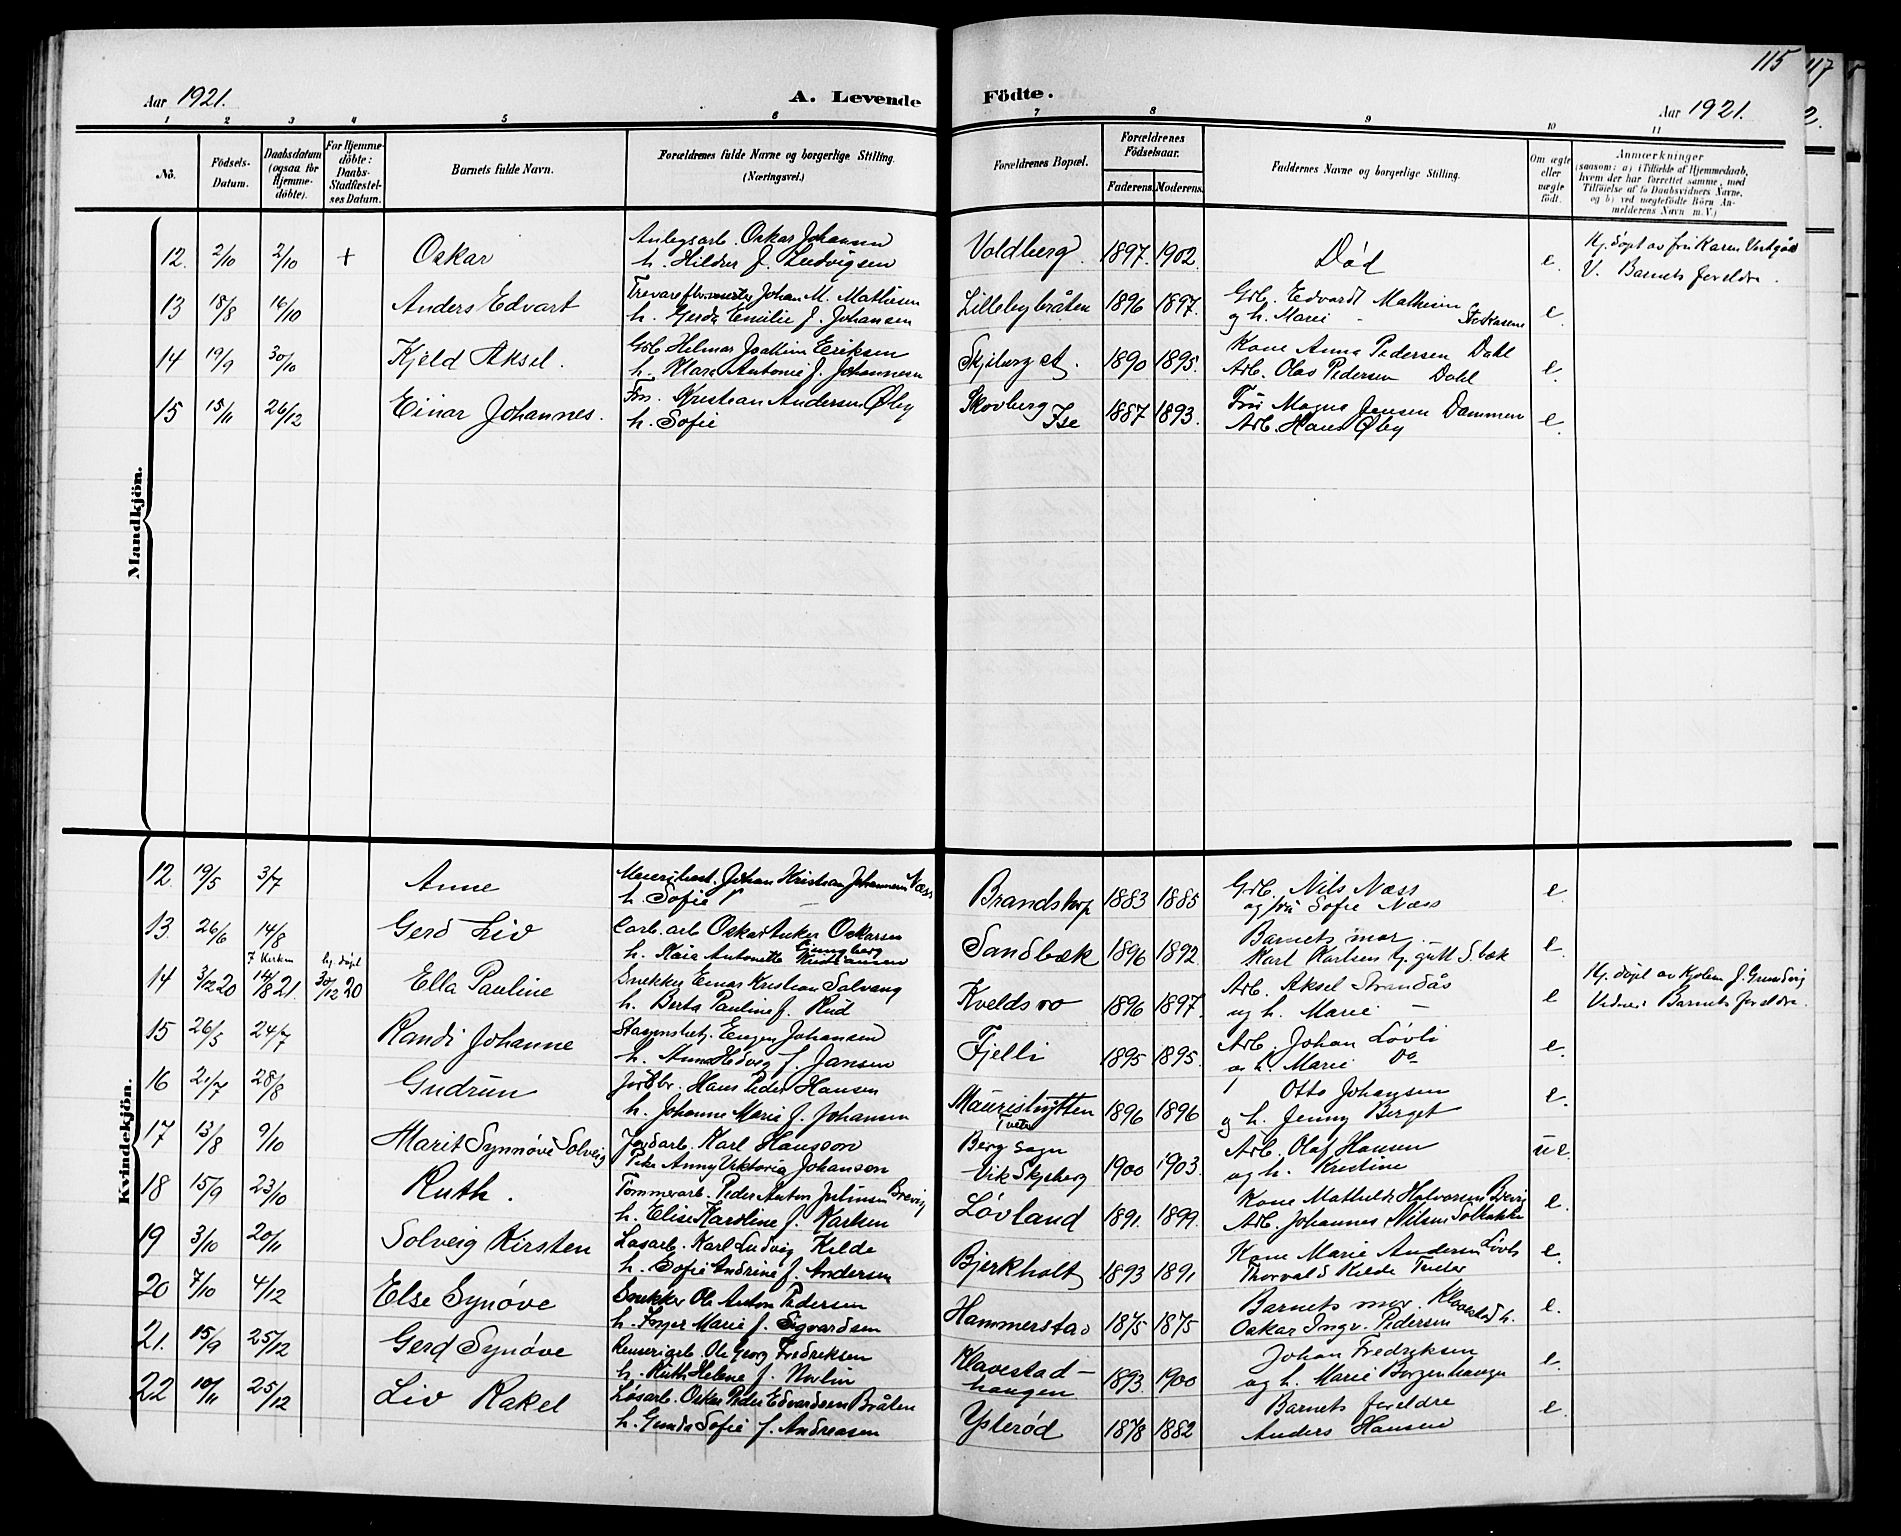 115
Aar 1921.
A. Levende Födte.
Aar 1921.
1 2 3 4 5 6 7 8 9 10 11
Nö.
Födsels-Datum.
Daabsdatum (ogsaa for Hjemme-döbte).
For Hjemme-döbte: Daabs-Stadfæstel-ses Datum.
Barnets fulde Navn.
Forældrenes fulde Navne og borgerlige Stilling. (Næringsvei.)
Forældrenes Bopæl.
Forældrenes Födselsaar.
Faderens. Moderens.
Faddernes Navne og borgerlige Stilling.
Om ægte eller uægte födt.
Anmærkninger
(saasom: a) i Tilfælde af Hjemmedaab, hvem der har forrettet samme, med Tilföielse af to Daabsvidners Navne, og b) ved uægtefödte Börn An-melderens Navn m. V.)
Mandkjön.
12. 2/10 2/10 + Oskar Anlegsarb. Oskar Johansen Voldberg. 1897. 1902. Död e. Hj. døpt av fru Karen
h. Hildur f. Ludvigsen V. Barnets foreldre.
13 18/8 16/10 Anders Edvart Johan M. Mathisen Lillebybråten 1896 1897. Grb. Edvardt e.
h. Gerda Emilie f. Johansen og h. Marie
14 19/9 30/10 Kjeld Aksel. Grb Helmer Joachim Eriksen 1890 1895. Kone Anna Pedersen Dahl e.
h. Klara Antonie f. Johannesen Arb. Olas Pedersen Dahl
15 15/11 26/12 Einar Johannes. Kristian Andersen Øby Skovberg Ise 1887 1893. Fru Magna Jensen Dammen e.
h. Sofie Arb. Hans Øby
Kvindekjön.
12. 19/5 3/7 Anne Johan Kristian Johannesen Næss Brandstorp 1883 1885 Grb. Nils Næss e.
h. Sofie og fru Sofie Næss
13 26/6 14/8 Gerd Liv Carb. arb Oskar Anker Oskarsen Sandbæk 1896 1892 Barnets mor. e.
h. Kaia Antonette Ljungberg Kristiansen Karl Karlsen S.bæk
14 3/12 20 i Kirken 14/8 21. hj. døpt 30/12 20 Ella Pauline Snekker Einar Kristian Solvang Kveldsro 1896 1897. Arb. Aksel Strandås e Hj. døpt av J. Grundvig
h. Berta Pauline f. Rud og h. Marie — Vidner: Barnets foreldre.
15 26/5 24/7 Randi Johanne Eugen Johansen Fjelli 1895 1895. Arb. Johan Løvli e.
h. Anna Hedvig f. Jansen og h. Marie Do
16 21/7 28/8 Gudrun Jordbr. Hans Peder Hansen 1896 1896 Otto Johansen e.
h. Johanne Marie f. Johansen og h. Jenny Berget
17 13/8 9/10 Marit Synnøve Solveig Jordarb. Karl Hansson Berg sogn 1900 1903. Arb. Olaf Hansen u e.
Pike Anny Viktoria Johanson Vik Skjeberg og h. Kristine
18 15/9 23/10 Ruth. Tømmerarb. Peder Anton Julinsen Brevig Løvland 1891. 1899. Kone Mathilde Halvorsen Brevig e.
h. Elise Karoline f. Karlsen Arb. Johannes Nilsen Solbakke
19 3/10 20/11 Solveig Kirsten Løsarb. Karl Ludvig Kilde Bjerkholt 1893 1891 Kone Marie Andersen Løvli e.
h. Sofie Andrine f. Andersen Thorvald Kilde Tveter
20 7/10 4/12 Else Synøve Snekker Ole Anton Pedersen Hammerstad 1875 1875 Barnets mor. Klavestad h. e.
h. Inger Marie f. Sigvardsen Oskar Ingv. Pedersen
21. 15/9 25/12 Gerd Synøve Ole Georg Fredriksen Klavestad- 1893 1900 Johan Fredriksen e.
h. Ruth Helene f. Norlin haugen og h. Marie Borgenhaugen
22 10/11 25/12 Liv Rakel Løsarb. Oskar Peder Edvardsen Bråten Ysterød 1878 1882 Barnets foreldre e.
h. Gunda Sofie f. Andreasen Anders Hansen